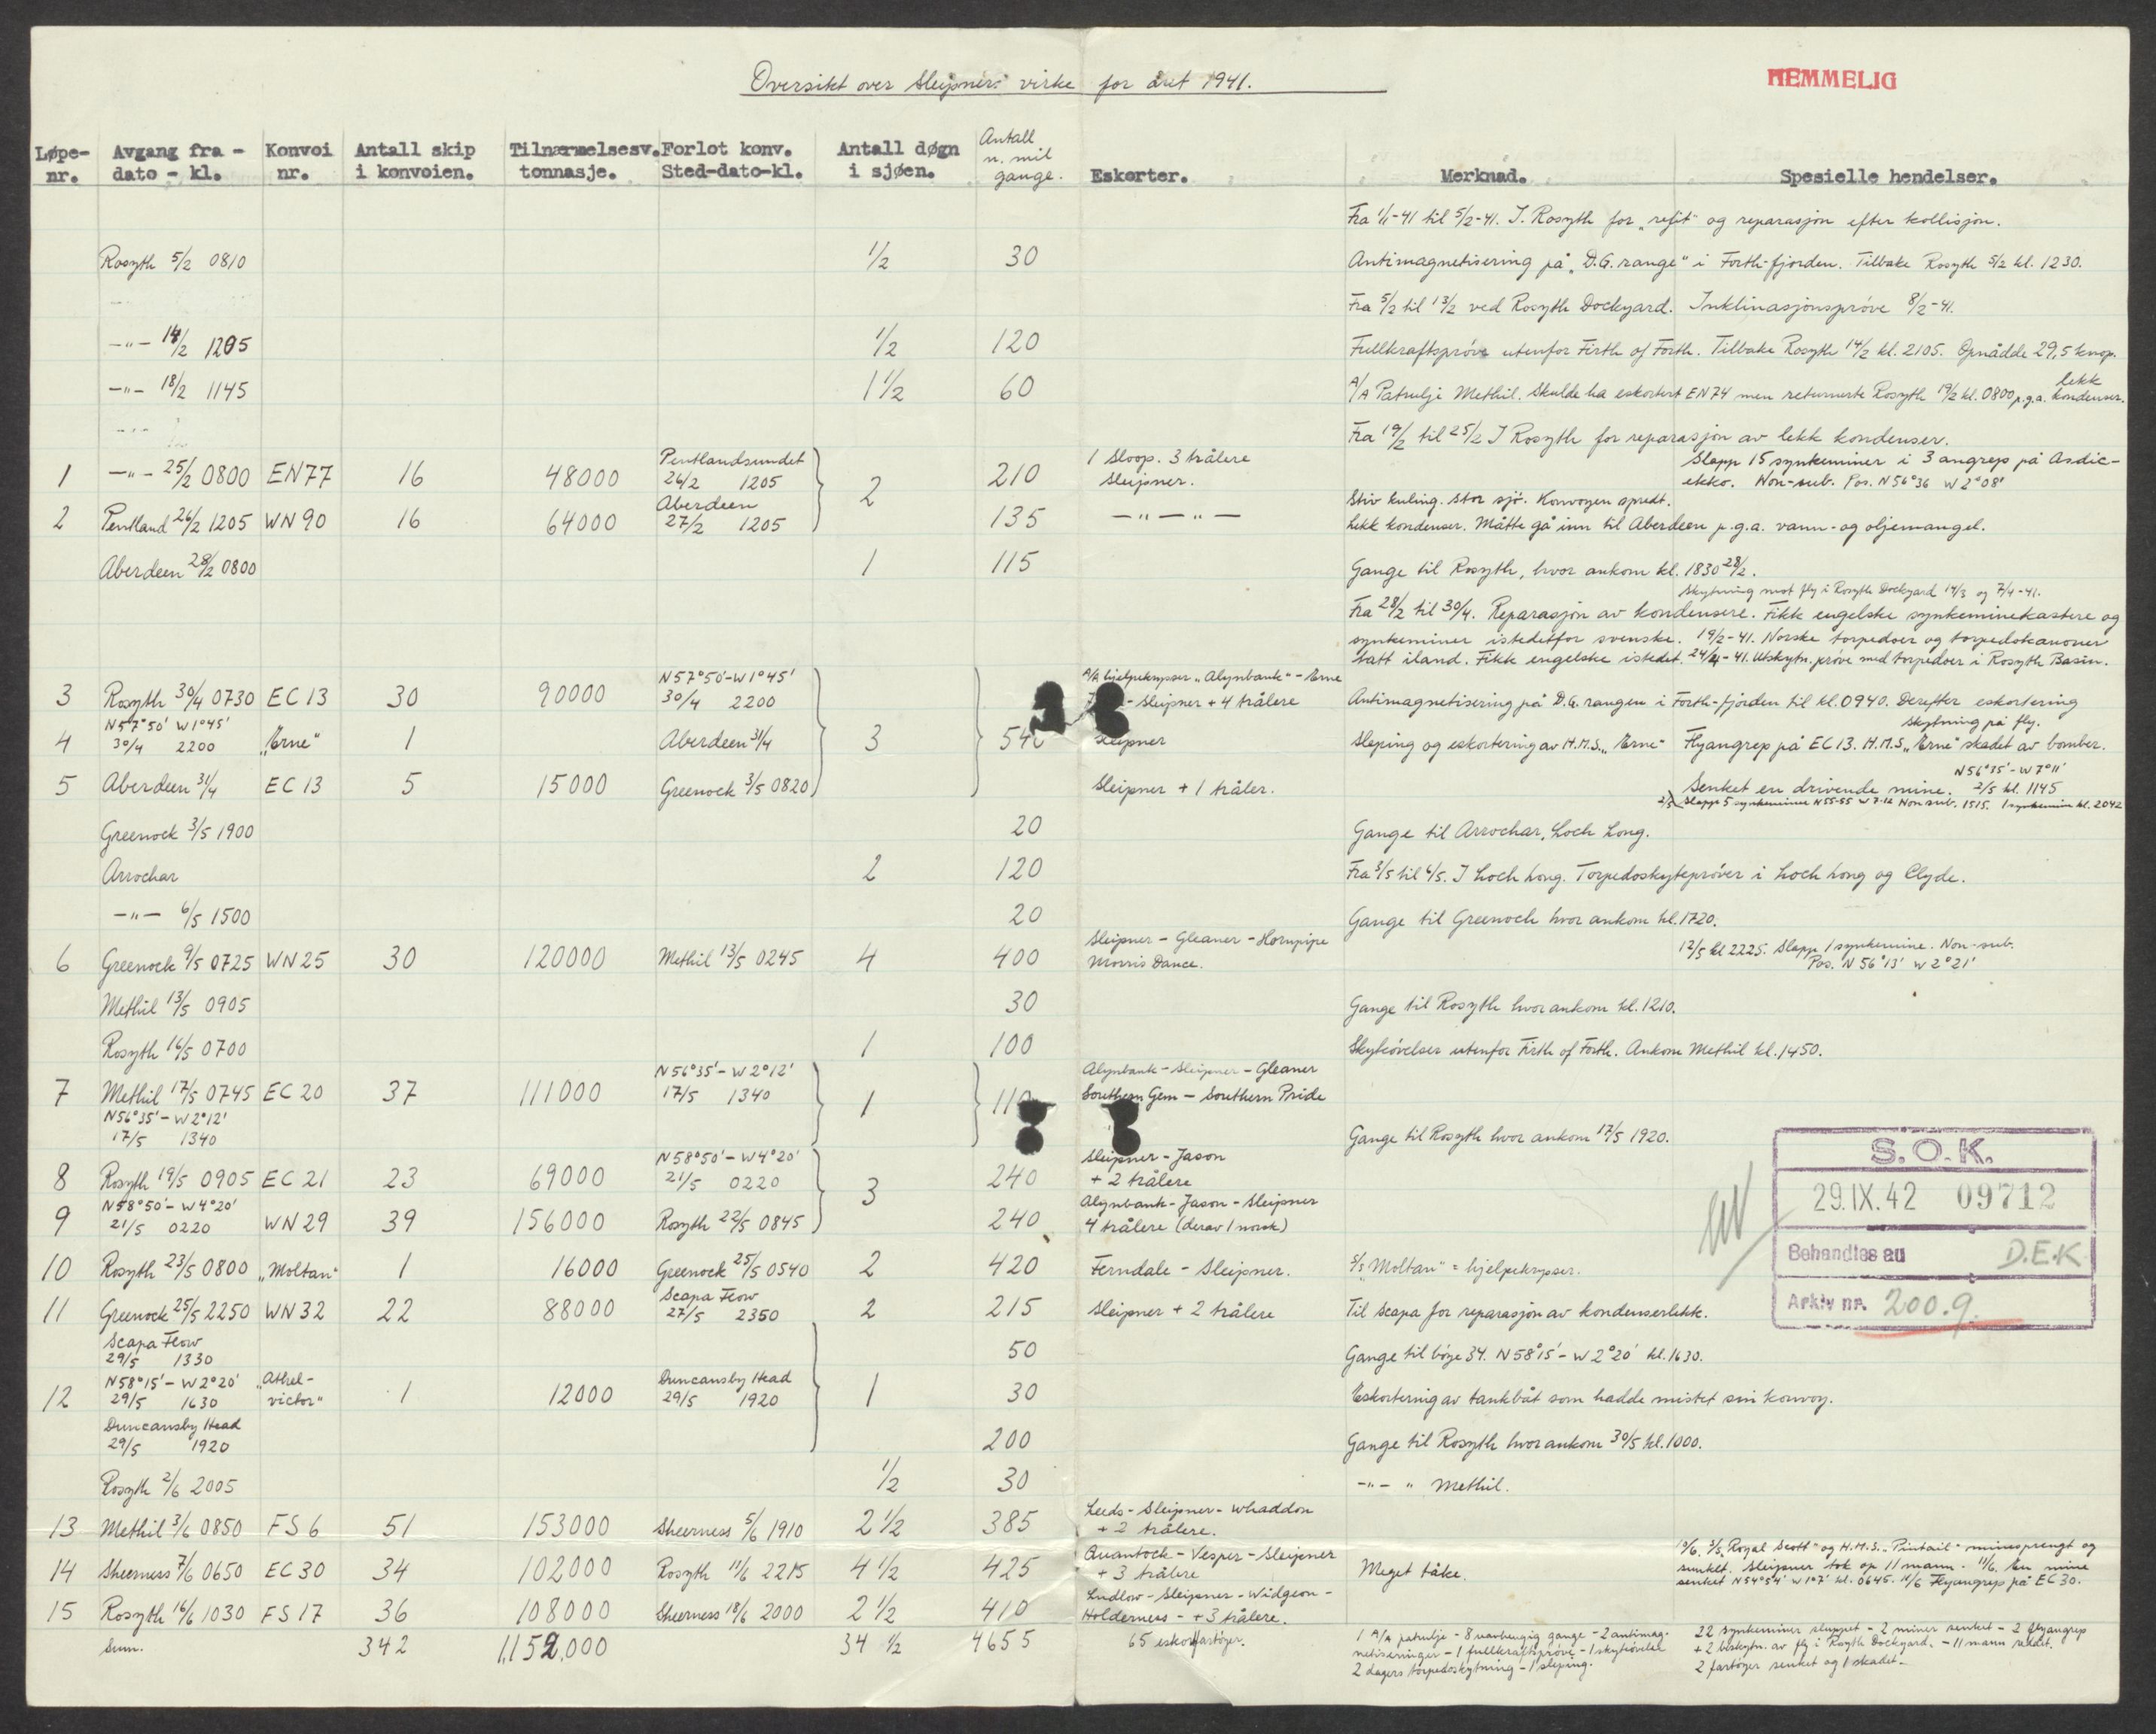 Oversikt over Sleipners virke for året 1941.
HEMMELIG
Løpe-nr. Avgang fra - dato - kl. Konvoi nr. Antall skip i konvoien. Tilnærmelsesv. tonnasje. Forlot konv. Sted-dato-kl. Antall døgn i sjøen. Antall n. mil gange. Eskorter. Merknad. Spesielle hendelser.
Fra 1/1-41 til 5/2-41. I. Rosyth for „refit" og reparasjon efter kollisjon.
Rosyth 5/2 0810 1/2 30 Antimagnetisering på „D.G. range" i Forth-fjorden. Tilbake Rosyth 5/2 kl. 1230.
Fra 5/2 til 13/2 ved Rosyth Dockyard. Inklinasjonsprøve 8/2-41.
-"- 14/2 1205 1/2 120 Fullkraftsprøve utenfor Firth of Forth. Tilbake Rosyth 14/2 kl. 2105. Opnådde 29,5 knop.
-"- 18/2 1145 1 1/2 60 A/A Patrulje Methil. Skulde ha eskortert EN74 men returnerte Rosyth 19/2 kl. 0800 p.g.a. lekk kondenser.
Fra 19/2 til 25/2 I Rosyth for reparasjon av lekk kondenser.
1 -"- 25/2 0800 EN77 16 48000 Pentlandsundet 26/2 1205 2 210 1 Sloop. 3 trålere Sleipner. Slapp 15 synkeminer i 3 angrep på Asdic-ekko. Non-sub. Pos. N56°36 W2°08'
2 Pentland 26/2 1205 WN90 16 64000 Aberdeen 27/2 1205 135 -"-"- Stiv kuling. Stor sjø. Konvoyen spredt.
Lekk kondenser. Måtte gå inn til Aberdeen p.g.a. vann- og oljemangel.
Aberdeen 28/2 0800 1 115 Gange til Rosyth, hvor ankom kl. 1830 28/2.
Skytning mot fly i Rosyth Dockyard 14/3 og 7/4-41.
Fra 28/2 til 30/4. Reparasjon av kondensere. Fikk engelske synkeminekastere og
synkeminer istedetfor svenske. 19/2-41. Norske torpedoer og torpedokanoner
tatt iland. Fikk engelske istedet. 24/4-41. Utskytn. prøve med torpedoer i Rosyth Basin.
3 Rosyth 30/4 0730 EC13 30 90000 N57°50'-W1°45' 30/4 2200 A/A hjelpekrysser „Alynbank" - Erne - Sleipner + 4 trålere Antimagnetisering på D.G. rangen i Forth-fjorden til kl. 0940. Derefter eskortering
4 N57°50' W1°45' 30/4 2200 „Erne" 1 Aberdeen 31/4 3 54 Sleipner Sleping og eskortering av H.M.S. „Erne" Skytning på fly. Flyangrep på EC13. H.M.S. „Erne" skadet av bomber.
5 Aberdeen 31/4 EC13 5 15000 Greenock 3/5 0820 Sleipner + 1 tråler. Senket en drivende mine. N56°35'-W7°11' 2/5 kl. 1145
2/5 Slapp 5 synkeminer N55-55 W7-12 Non sub. 1515. 1 synkemin kl. 2042
Greenock 3/5 1900 20 Gange til Arrochar, Loch Long.
Arrochar 2 120 Fra 3/5 til 6/5. I Loch Long. Torpedoskyteprøver i Loch Long og Clyde.
-"- 6/5 1500 20 Gange til Greenock hvor ankom kl. 1720.
6 Greenock 9/5 0725 WN25 30 120000 Methil 13/5 0245 4 400 Sleipner - Gleaner - Hornpipe Morris Dance. 12/5 kl 2225. Slapp 1 synkemine. Non-sub. Pos. N56°13' W2°21'
Methil 13/5 0905 30 Gange til Rosyth hvor ankom kl. 1210.
Rosyth 16/5 0700 1 100 Skyteøvelser utenfor Firth of Forth. Ankom Methil kl. 1450.
7 Methil 17/5 0745 EC20 37 111000 N56°35'-W2°12' 17/5 1340 1 11 Alynbank - Sleipner - Gleaner Southern Gem - Southern Pride
N56°35'-W2°12' 17/5 1340 Gange til Rosyth hvor ankom 17/5 1920.
8 Rosyth 19/5 0905 EC21 23 69000 N58°50'-W4°20' 21/5 0220 3 240 Sleipner - Jason + 2 trålere
9 N58°50'-W4°20' 21/5 0220 WN29 39 156000 Rosyth 22/5 0845 240 Alynbank - Jason - Sleipner 4 trålere (derav 1 norsk)
10 Rosyth 23/5 0800 „Moltan" 1 16000 Greenock 25/5 0540 2 420 Ferndale - Sleipner. S/S „Moltan" = hjelpekrysser.
11 Greenock 25/5 2250 WN32 22 88000 Scapa Flow 27/5 2350 2 215 Sleipner + 2 trålere Til Scapa for reparasjon av kondenserlekk.
Scapa Flow 29/5 1330 50 Gange til bøye 34. N58°15'-W2°20' kl. 1630.
12 N58°15'-W2°20' 29/5 1630 „Athel-victor" 1 12000 Duncansby Head 29/5 1920 1 30 Eskortering av tankbåt som hadde mistet sin konvoy.
Duncansby Head 29/5 1920 200 Gange til Rosyth hvor ankom 30/5 kl. 1000.
Rosyth 2/6 2005 1/2 30 -"- " Methil.
13 Methil 3/6 0850 FS6 51 153000 Sheerness 5/6 1910 2 1/2 385 Leeds - Sleipner - Whaddon + 2 trålere.
14 Sheerness 7/6 0650 EC30 34 102000 Rosyth 11/6 2215 4 1/2 425 Quantock - Vesper - Sleipner + 3 trålere Meget tåke. 10/6. S/S „Royal Scott" og H.M.S. „Pintail" minesprengt og
sunket. Sleipner tok op 11 mann. 11/6. En mine
senket N54°54' W1°7' kl. 0645. 11/6 Flyangrep på EC30.
15 Rosyth 16/6 1030 FS17 36 108000 Sheerness 18/6 2000 2 1/2 410 Ludlow - Sleipner - Widgeon - Holderness - + 3 trålere.
Sum. 342 1,152,000 34 1/2 4655 65 eskortfartøyer. 1 A/A patrulje - 8 uavhengig gange - 2 antimag-
netiseringer - 1 fullkraftsprøve - 1 skyteøvelse
2 dagers torpedoskytning - 1 sleping.
22 synkeminer sluppet - 2 miner senket - 2 flyangrep
+ 2 beskytn. av fly i Rosyth Dockyard. - 11 mann reddet.
2 fartøyer senket og 1 skadet -
S.O.K.
29.IX.42 09712
Behandles av D.E.K
Arkiv nr. 200.9.